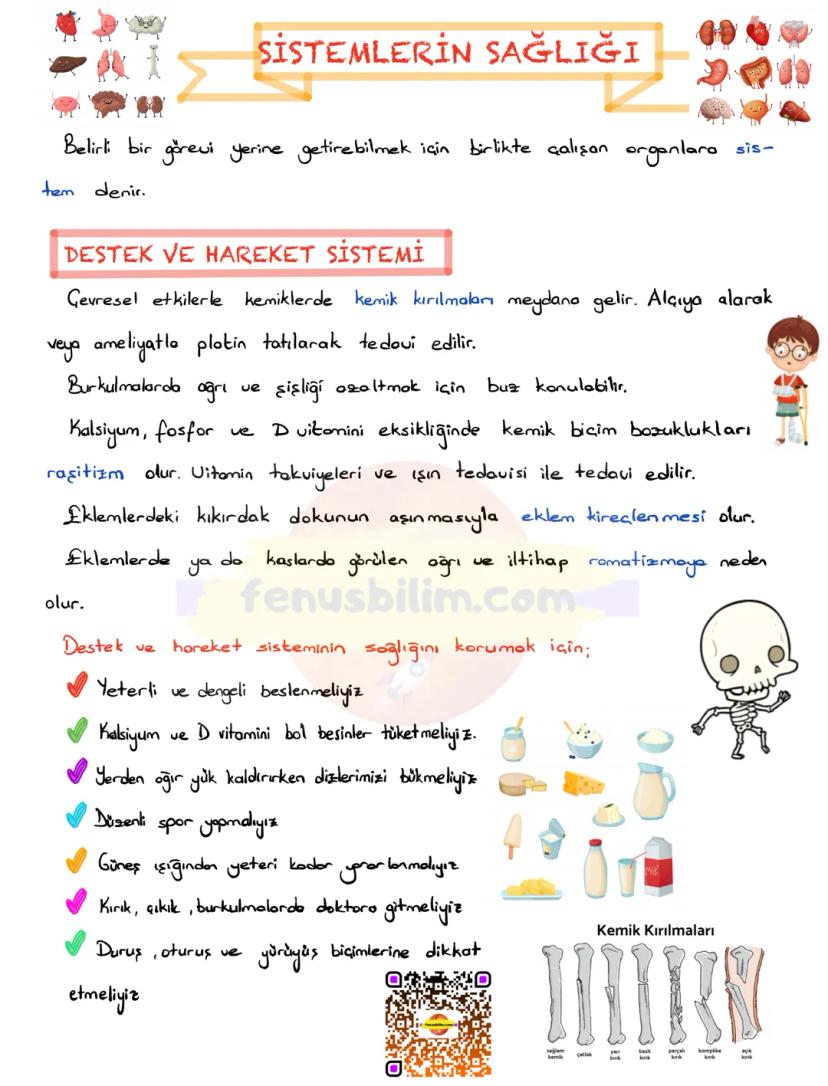 SİSTEMLERİN SAĞLIĞI
Belirli bir görevi yerine getirebilmek için birlikte çalışan organlara sis-
tem denir.
DESTEK VE HAREKET SİSTEMİ
Çevresel etkilerle kemiklerde kemik kırılmaları meydana gelir. Alçıya alarak
veya ameliyatla platin takılarak tedavi edilir.
Burkulmalarda ağrı ve şişliği azaltmak için buz konulabilir.
Kalsiyum, fosfor ve D vitamini eksikliğinde kemik biçim bozuklukları
raşitizm olur. Vitamin takviyeleri ve ışın tedavisi ile tedavi edilir.
Eklemlerdeki kıkırdak dokunun aşınmasıyla eklem kireçlenmesi olur.
Eklemlerde ya da kaslarda görülen ağrı ve iltihap romatizmaya neden
olur.
fenusbilim.com
Destek ve hareket sisteminin sağlığını korumak için;
Yeterli ve dengeli beslenmeliyiz
Kalsiyum ve D vitamini bol besinler tüketmeliyiz.
Yerden ağır yük kaldırırken dizlerimizi bükmeliyiz
Düzenli spor yapmalıyız
Güneş ışığından yeteri kadar yararlanmalıyız
Kırık, çıkık, burkulmalarda doktora gitmeliyiz
Duruş, oturuş ve yürüyüş biçimlerine dikkat
etmeliyiz
fenusbilim.com
Kemik Kırılmaları
sağlam kemik
çatlak
yarı kırık
basit kırık
parçalı kırık
komplike kırık
açık kırık